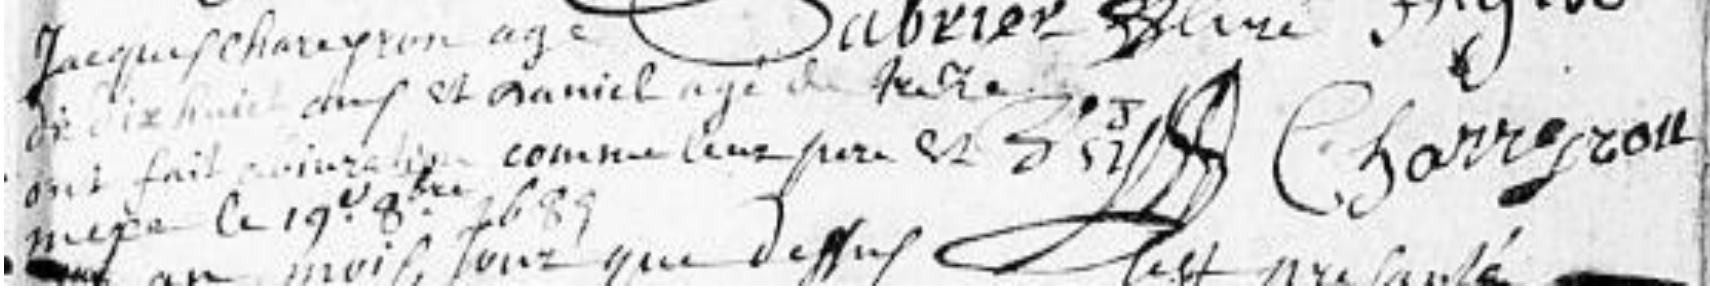 Jacques chareyron agé Gabrier Curé
de dix huict ans et daniel agé de treze
ont fait abiuration comme leur pere et Charreyron
mere le 19e 8bre 168
an mois, Jour que dessus s'est presanté